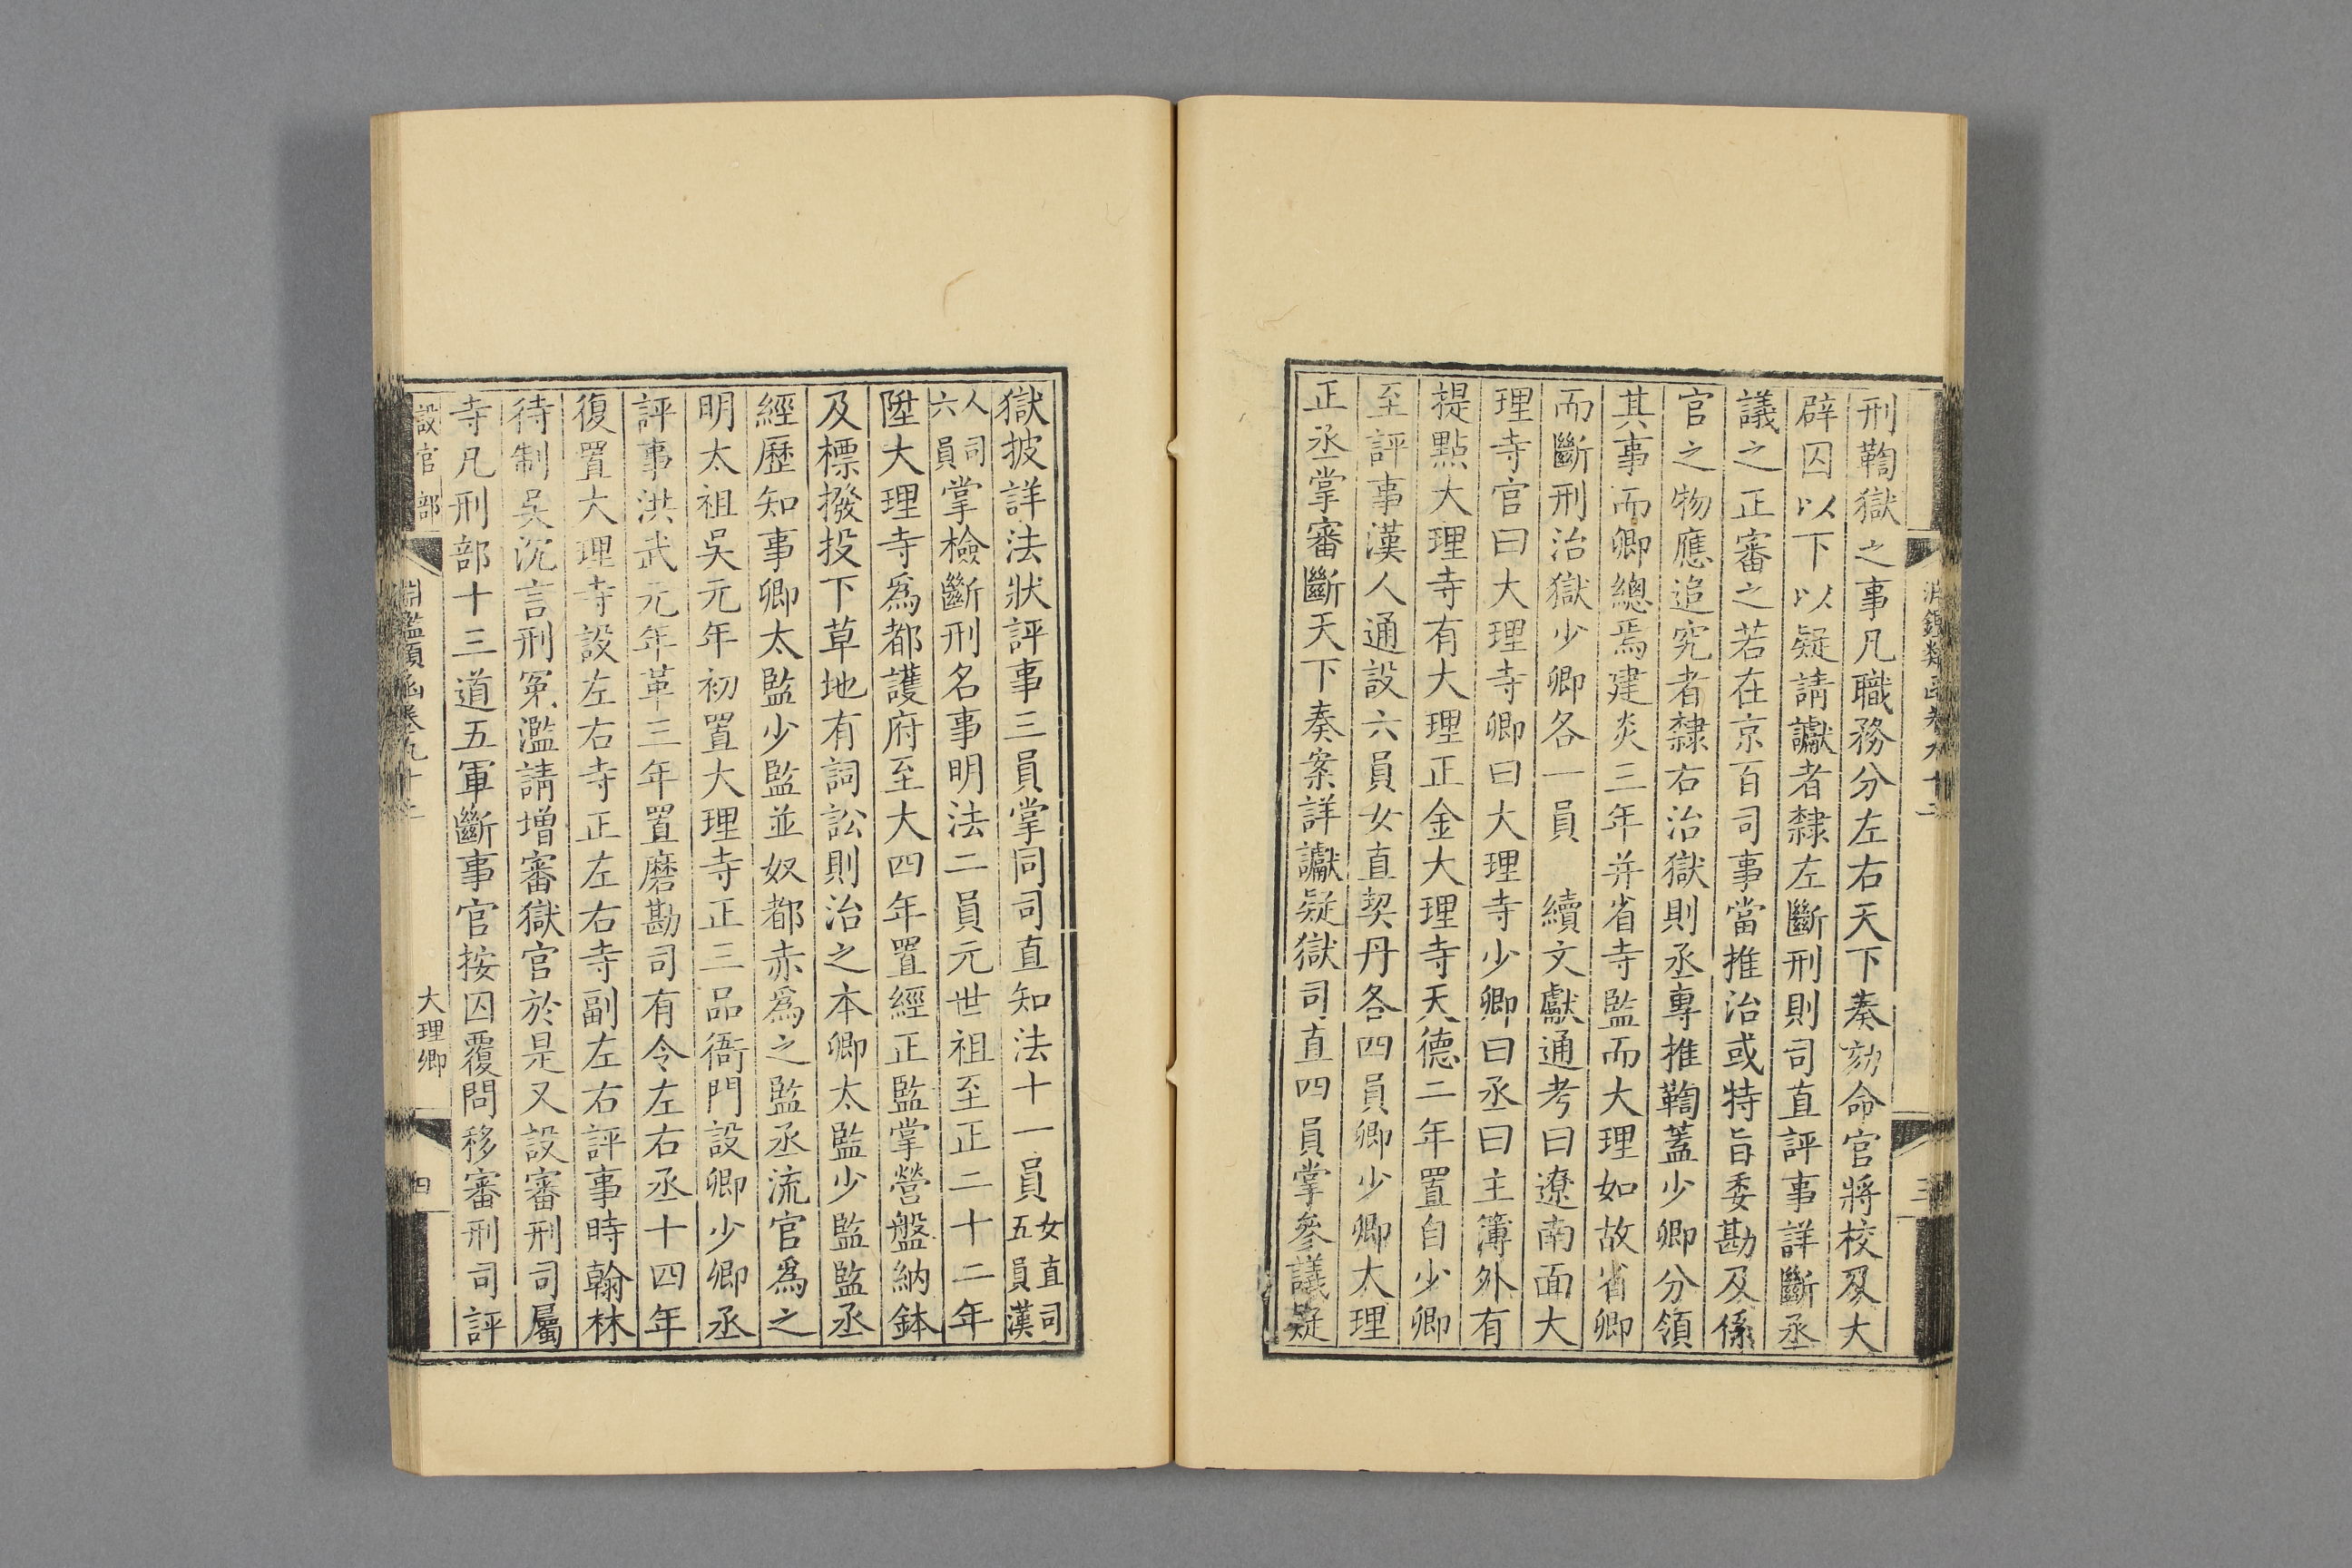 刑鞫獄之事凡職務分左右天下奏劾命官將校及大
辟囚以下以疑請讞者隸左斷刑則司直評事詳斷丞
議之正審之若在京百司事當推治或特旨委勘及係
官之物應追究者隸右治獄則丞專推鞫蓋少卿分領
其事而卿總焉建炎三年并省寺監而大理如故省卿
而斷刑治獄少卿各一員　續文獻通考曰遼南面大
理寺官曰大理寺卿曰大理寺少卿曰丞曰主簿外有
提點大理寺有大理正金大理寺天德二年置自少卿
至評事漢人通設六員女直契丹各四員卿少卿大理
正丞掌審斷天下奏案詳讞疑獄司直四員掌參議疑
獄披詳法狀評事三員掌同司直知法十一員女直司五員漢
人司六員掌檢斷刑名事明法二員元世祖至正二十二年
陞大理寺爲都護府至大四年置經正監掌營盤納鉢
及標撥投下草地有詞訟則治之本卿太監少監監丞
經歷知事卿太監少監並奴都赤爲之監丞流官爲之
明太祖吳元年初置大理寺正三品衙門設卿少卿丞
評事洪武元年革三年置磨勘司有令左右丞十四年
復置大理寺設左右寺正左右寺副左右評事時翰林
待制吳沉言刑冤濫請增審獄官於是又設審刑司屬
寺凡刑部十三道五軍斷事官按囚覆問移審刑司評
設官部
淵鑑類函卷九十三
大理卿
四